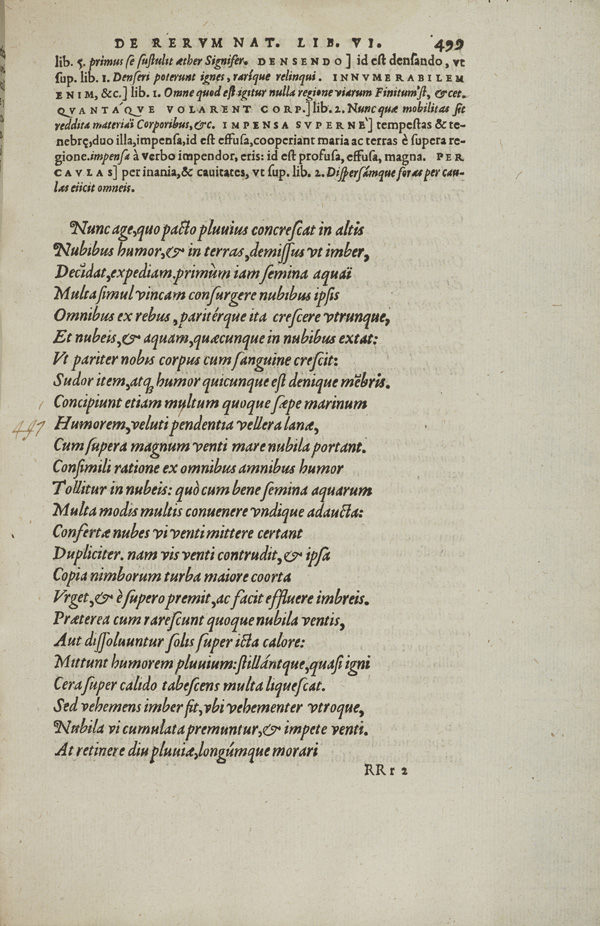 DE RERVM NAT. LIB. VI. 499
lib. 5. primus se sustulit æther Signifer. DENSENDO] id est densando, vt
sup. lib. 1. Denseri poterunt ignes, rarique relinqui. INNVMERABILEM
ENIM, &c.] lib. 1. Omne quod est igitur nulla regione viarum Finitum'st, & cet.
QVANTÁ QVE VOLARENT CORP.] lib. 2. Nunc quæ mobilitas sit
reddita materiaï Corporibus, &c. IMPENSA SVPERNE`] tempestas & te-
nebrę, duo illa, impensa, id est effusa, cooperiant maria ac terras è supera re-
gione. impensa à verbo impendor, eris: id est profusa, effusa, magna. PER
CAVLAS] per inania, & cauitates, vt sup. lib. 2. Dispersámque foras per cau-
las eiicit omneis.
Nunc age, quo pacto pluuius concrescat in altis
Nubibus humor, & in terras, demissus vt imber,
Decidat, expediam. primùm iam semina aquaï
Multa simul vincam consurgere nubibus ipsis
Omnibus ex rebus, paritérque ita crescere vtrunque,
Et nubeis, & aquam, quæcunque in nubibus extat:
Vt pariter nobis corpus cum sanguine crescit:
Sudor item, atq; humor quicunque est denique mẽbris.
Concipiunt etiam multum quoque sæpe marinum
497 Humorem, veluti pendentia vellera lanæ,
Cum supera magnum venti mare nubila portant.
Consimili ratione ex omnibus amnibus humor
Tollitur in nubeis: quò cum bene semina aquarum
Multa modis multis conuenere vndique adaucta:
Confertæ nubes vi venti mittere certant
Dupliciter. nam vis venti contrudit, & ipsa
Copia nimborum turba maiore coorta
Vrget, & è supero premit, ac facit effluere imbreis.
Præterea cum rarescunt quoque nubila ventis,
Aut dissoluuntur solis super icta calore:
Mittunt humorem pluuium: stillántque, quasi igni
Cera super calido tabescens multa liquescat.
Sed vehemens imber fit, vbi vehementer vtroque,
Nubila vi cumulata premuntur, & impete venti.
At retinere diu pluuiæ, longúmque morari
RRr 2